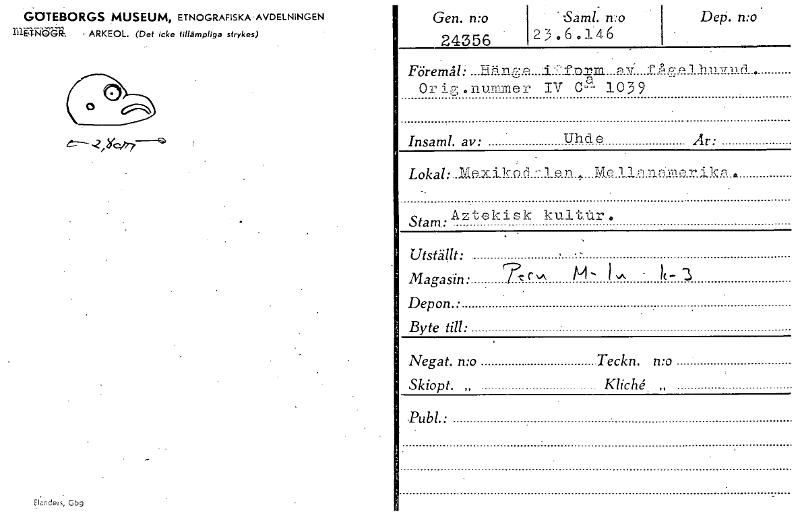 GÖTEBORGS MUSEUM, ETNOGRAFISKA AVDELNINGEN
ETNOGR. ARKEOL. (Det icke tillämpliga strykes)
2,8cm
Elanders, Gbg
Gen. n:o Saml. n:o Dep. n:o
24356 23.6.146
Föremål: Hänge i form av fågelhuvud.
Orig.nummer IV Ca 1039
Insaml. av: Uhde År:
Lokal: Mexikodalen, Mellanamerika.
Stam: Aztekisk kultur.
Utställt:
Magasin: Peru M-
Depon.:
Byte till:
Negat. n:o Teckn. n:o
Skiopt. „ Kliché „
Publ.: